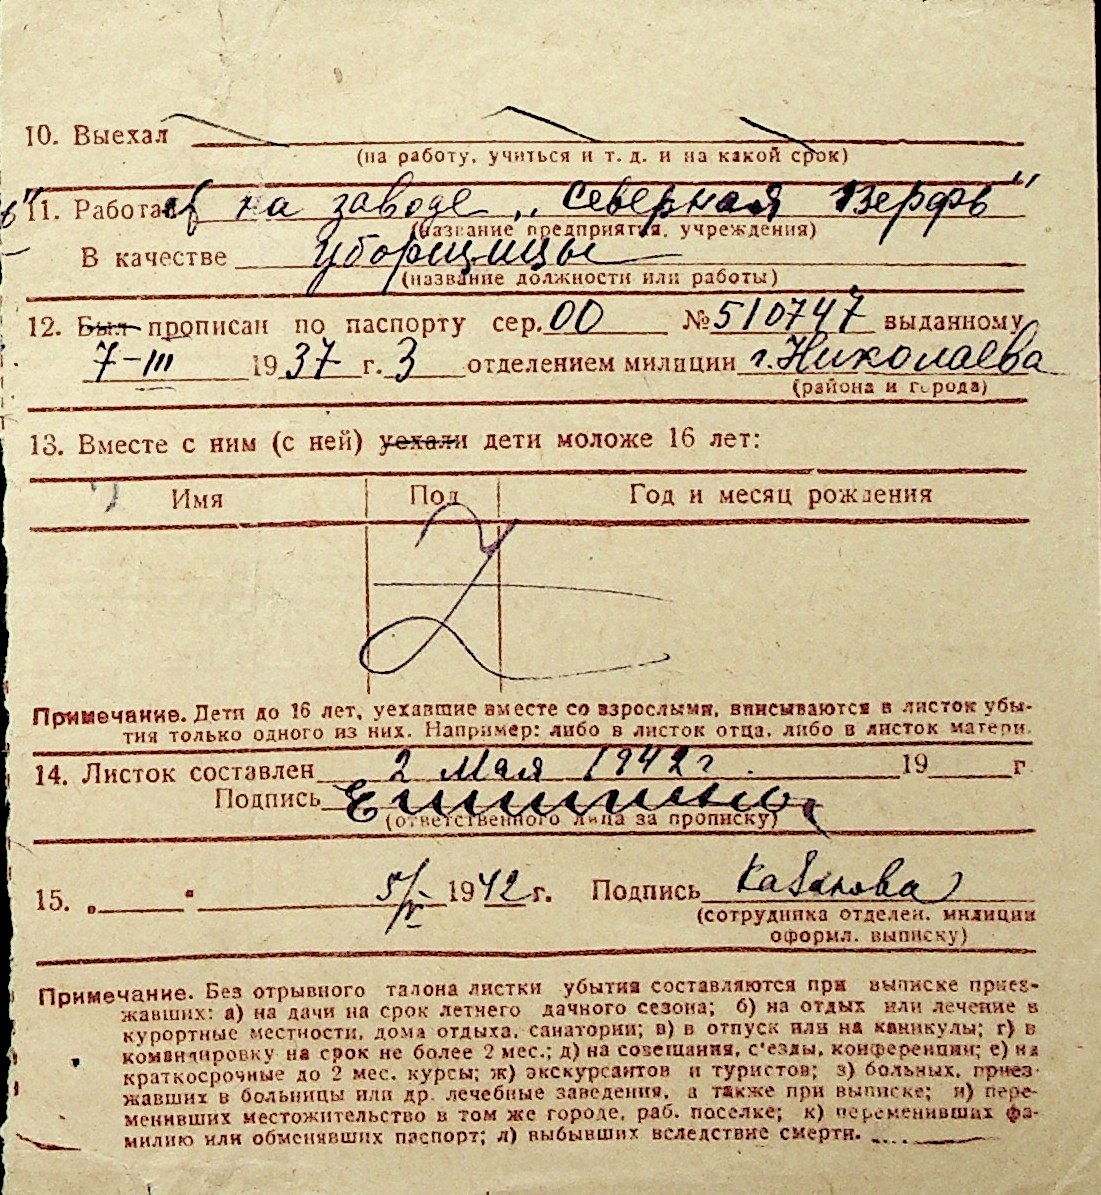 10. Выехал
(на работу, учиться и т. д. и на какой срок)
11. Работал на заводе „Северная Верфь"
(название предприятия, учреждения)
В качестве уборщицы
(название должности или работы)
12. Был прописан по паспорту сер. 00 № 510747 выданному
7-III 1937 г. 3 отделением милиции г. Николаева
(района и города)
13. Вместе с ним (с ней) уехали дети моложе 16 лет:
Имя Пол Год и месяц рождения
Примечание. Дети до 16 лет, уехавшие вместе со взрослыми, вписываются в листок убы-
тия только одного из них. Например: либо в листок отца, либо в листок матери.
14. Листок составлен 2 Мая 1942 г. 19 г
Подпись
(ответственного лица за прописку)
15. „ " 5/V 1942 г. Подпись
(сотрудника отделен. милиции
оформл. выписку)
Примечание. Без отрывного талона листки убытия составляются при выписке приез-
жавших: а) на дачи на срок летнего дачного сезона; б) на отдых или лечение в
курортные местности, дома отдыха, санатории; в) в отпуск или на каникулы; г) в
командировку на срок не более 2 мес.; д) на совещания, с'езды, конференции; е) на
краткосрочные до 2 мес. курсы; ж) экскурсантов и туристов; з) больных, приез-
жавших в больницы или др. лечебные заведения, а также при выписке; и) пере-
менивших местожительство в том же городе, раб. поселке; к) переменивших фа-
милию или обменявших паспорт; л) выбывших вследствие смерти.